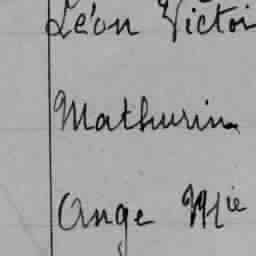 Léon Victor
Mathurin
Ange Mie